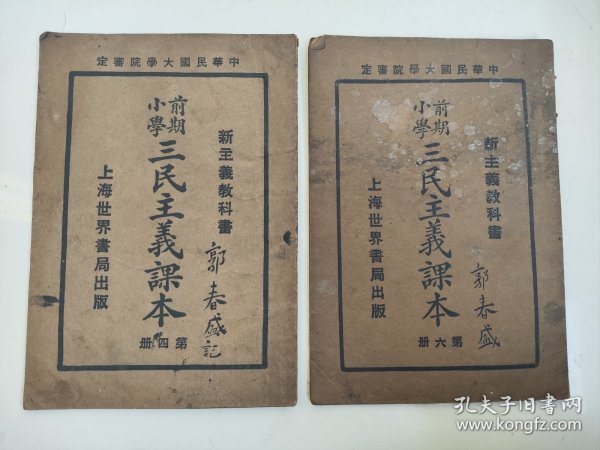 中華民國大學院審定
新主義教科書
前期
小學
三民主義課本
上海世界書局出版
第四册
郭春盛記
中華民國大學院審定
新主義教科書
前期
小學
三民主義課本
上海世界書局出版
第六册
郭春盛
孔夫子旧书网
www.kongfz.com